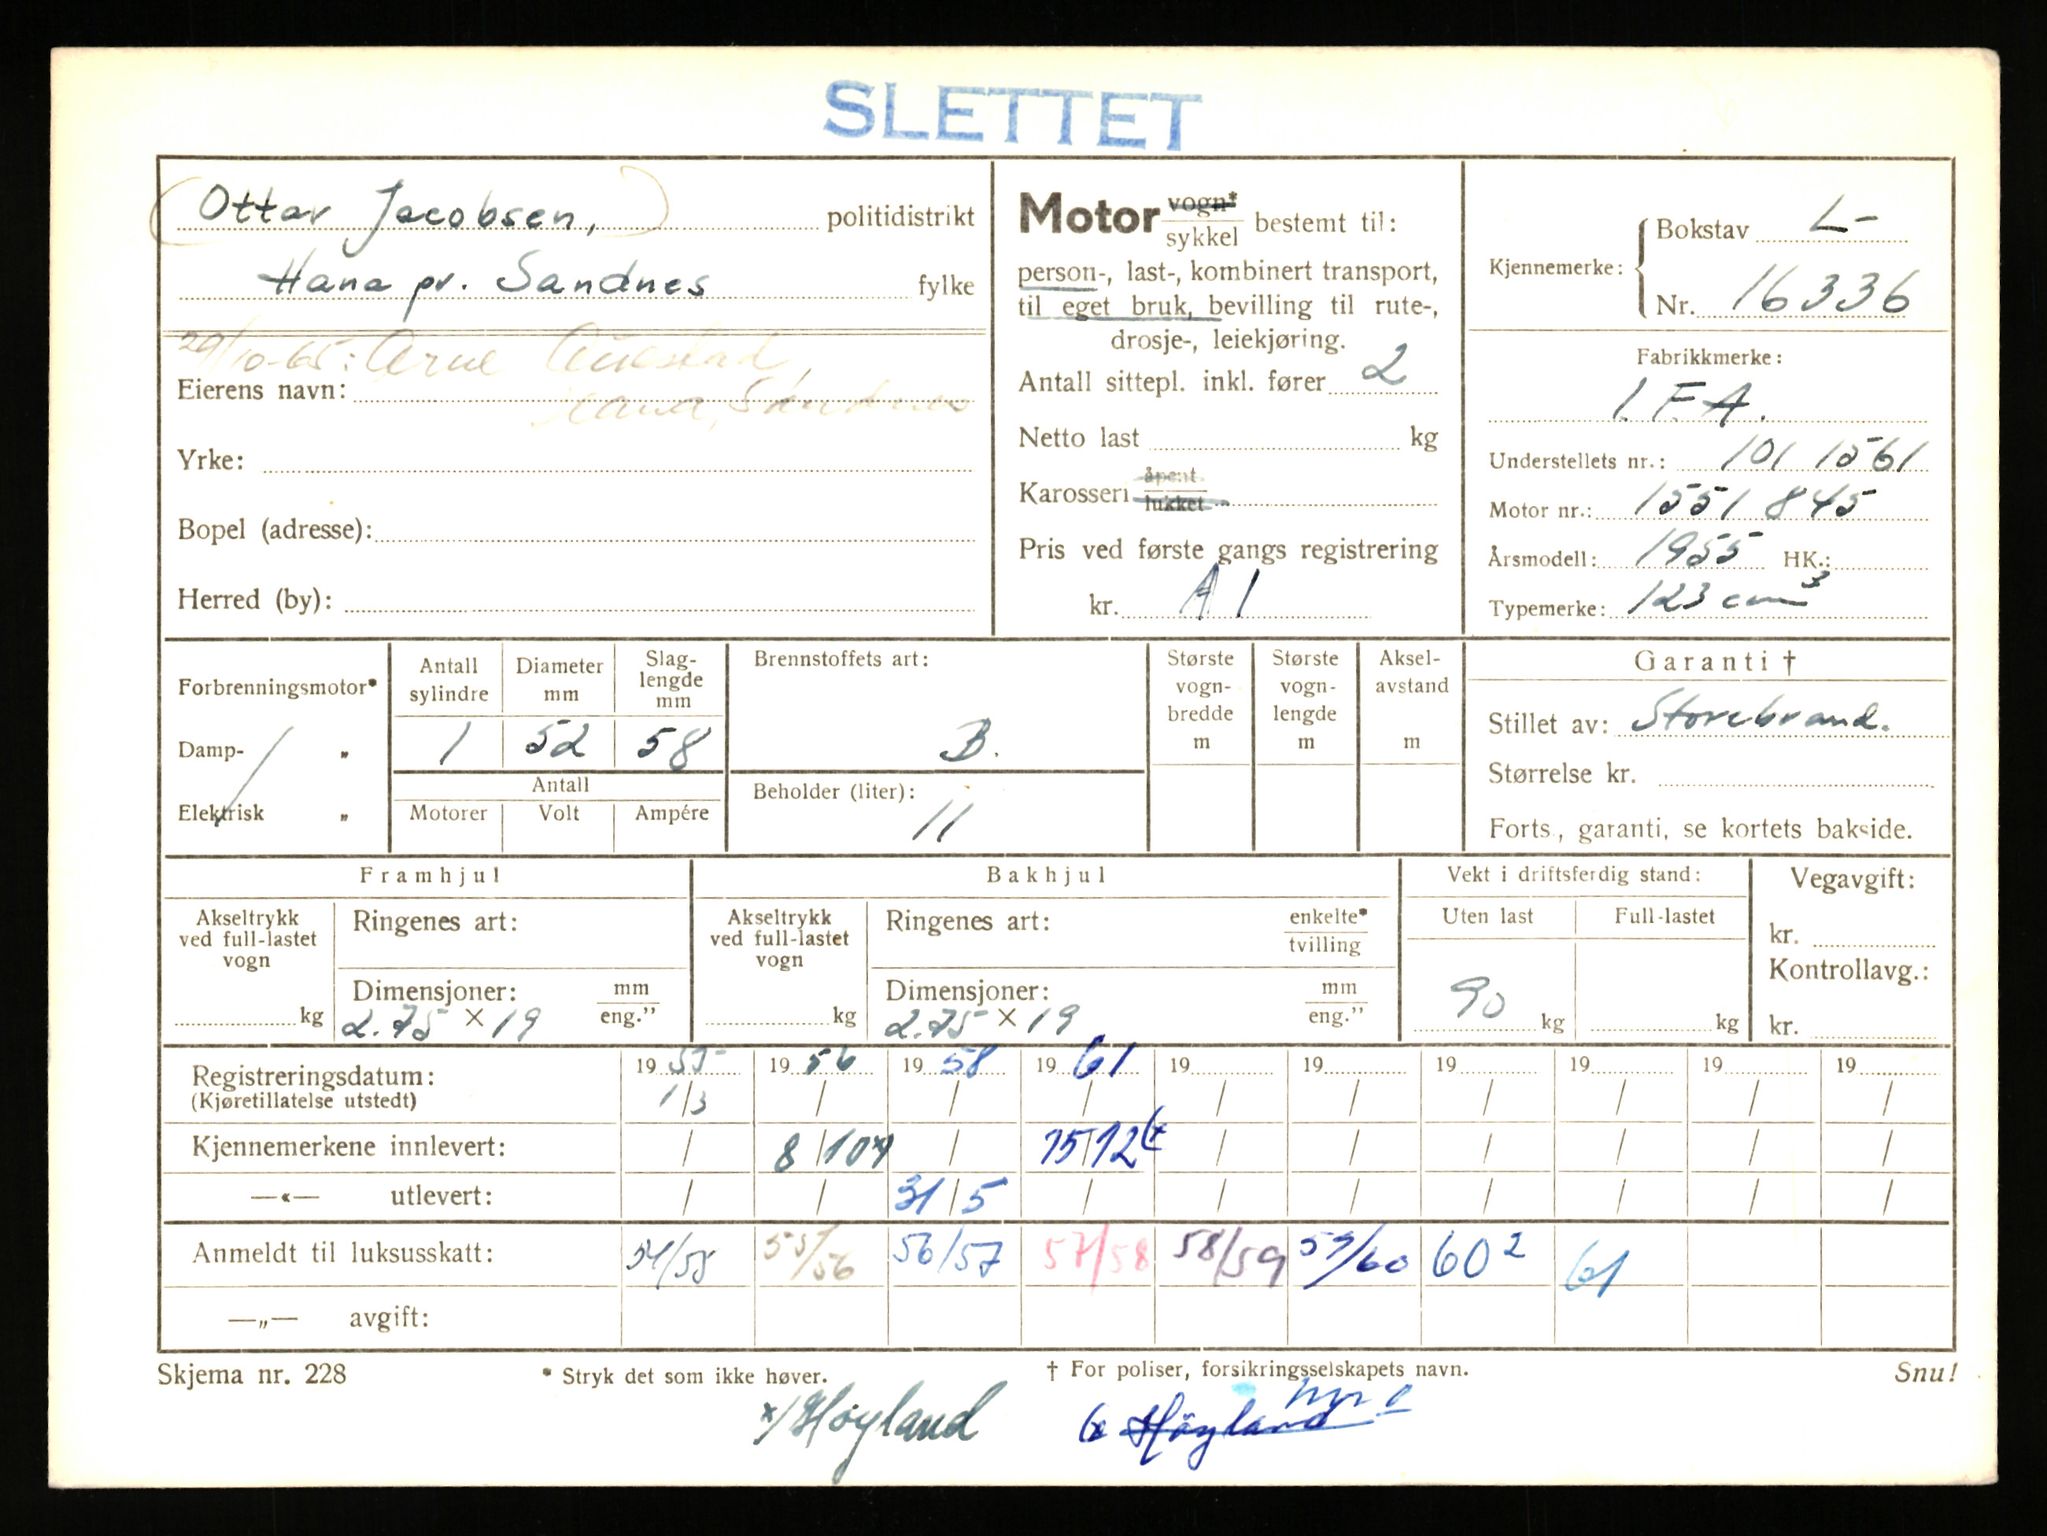 SLETTET
Ottar Jacobsen, politidistrikt
Hana pr. Sandnes fylke
29/10-65: Arne
Eierens navn: Hana, Sandnes
Yrke:
Bopel (adresse):
Herred (by):
Motor vogn* sykkel bestemt til:
person-, last-, kombinert transport,
til eget bruk, bevilling til rute-,
drosje-, leiekjøring.
Antall sittepl. inkl. fører 2
Netto last kg
Karosseri åpent lukket
Pris ved første gangs registrering
kr. A 1
Kjennemerke: Bokstav L-
Nr. 16336
Fabrikkmerke:
I F A.
Understellets nr.: 101 1561
Motor nr.: 1551 845
Årsmodell: 1955 HK.:
Typemerke: 123 cm³
Forbrenningsmotor*
Damp- „
Elektrisk „
Antall sylindre 1
Diameter mm 52
Slag-lengde mm 58
Antall
Motorer Volt Ampére
Brennstoffets art:
B.
Beholder (liter):
11
Største vogn-bredde m
Største vogn-lengde m
Aksel-avstand m
Garanti †
Stillet av: Storebrand.
Størrelse kr.
Forts., garanti, se kortets bakside.
Framhjul
Akseltrykk ved full-lastet vogn kg
Ringenes art:
Dimensjoner: mm eng."
2.75 × 19
Bakhjul
Akseltrykk ved full-lastet vogn kg
Ringenes art: enkelte* tvilling
Dimensjoner: mm eng."
2.75 × 19
Vekt i driftsferdig stand:
Uten last Full-lastet
90 kg kg
Vegavgift:
kr.
Kontrollavg.:
kr.
Registreringsdatum: 19 55 19 56 19 58 19 61 19 19 19 19 19 19
(Kjøretillatelse utstedt) 1/3 / / / / / / / / /
Kjennemerkene innlevert: / 8/10 x) / 15/12 (x / / / / / /
—«— utlevert: / / 31/5 / / / / / / /
Anmeldt til luksusskatt: 54/55 55/56 56/57 57/58 58/59 59/60 60² 61
—„— avgift:
Skjema nr. 228 * Stryk det som ikke høver. † For poliser, forsikringsselskapets navn. Snu!
x) Høyland (x Höyland